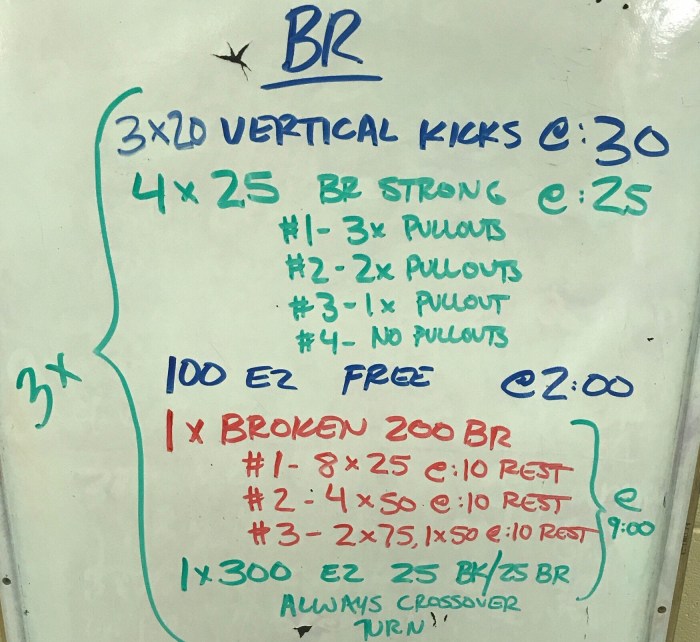 BR
3x20 VERTICAL KICKS @:30
4x25 BR STRONG @:25
#1- 3x PULLOUTS
#2-2x PULLOUTS
#3-1x PULLOUT
#4- NO PULLOUTS
3x
100 EZ FREE @2:00
1x BROKEN 200 BR
#1- 8x25 @:10 REST
#2-4x50 @:10 REST
#3-2x75, 1x50 @:10 REST
@ 9:00
1x300 EZ 25 BK/25 BR
ALWAYS CROSSOVER
TURN